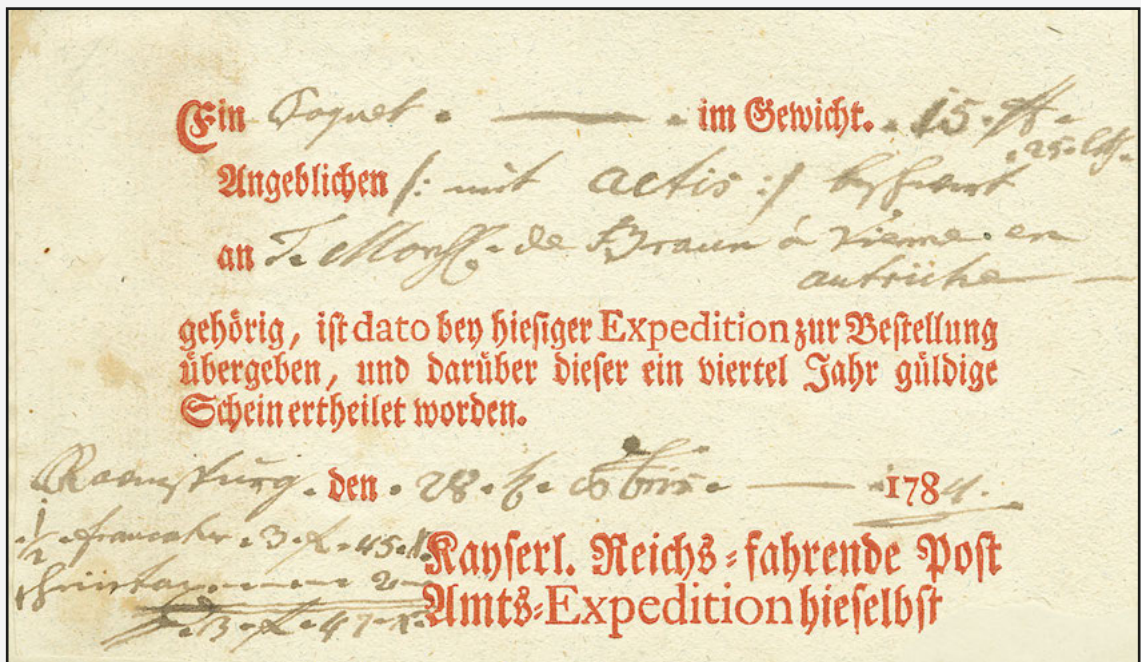 Ein Paquet. — im Gewicht. 15. ℔.
25. lth.
Angeblichen /: mit actis :/ beschwert
an T. Mons. de Braun à Vienne en
autriche —
gehörig, ist dato bey hiesiger Expedition zur Bestellung
übergeben, und darüber dieser ein viertel Jahr güldige
Schein ertheilet worden.
den 28. 8bris — 1784.
1/2 franco 3. f. 45. x.
Kayserl. Reichs-fahrende Post
2
Amts-Expedition hieselbst
3. f. 47. x.